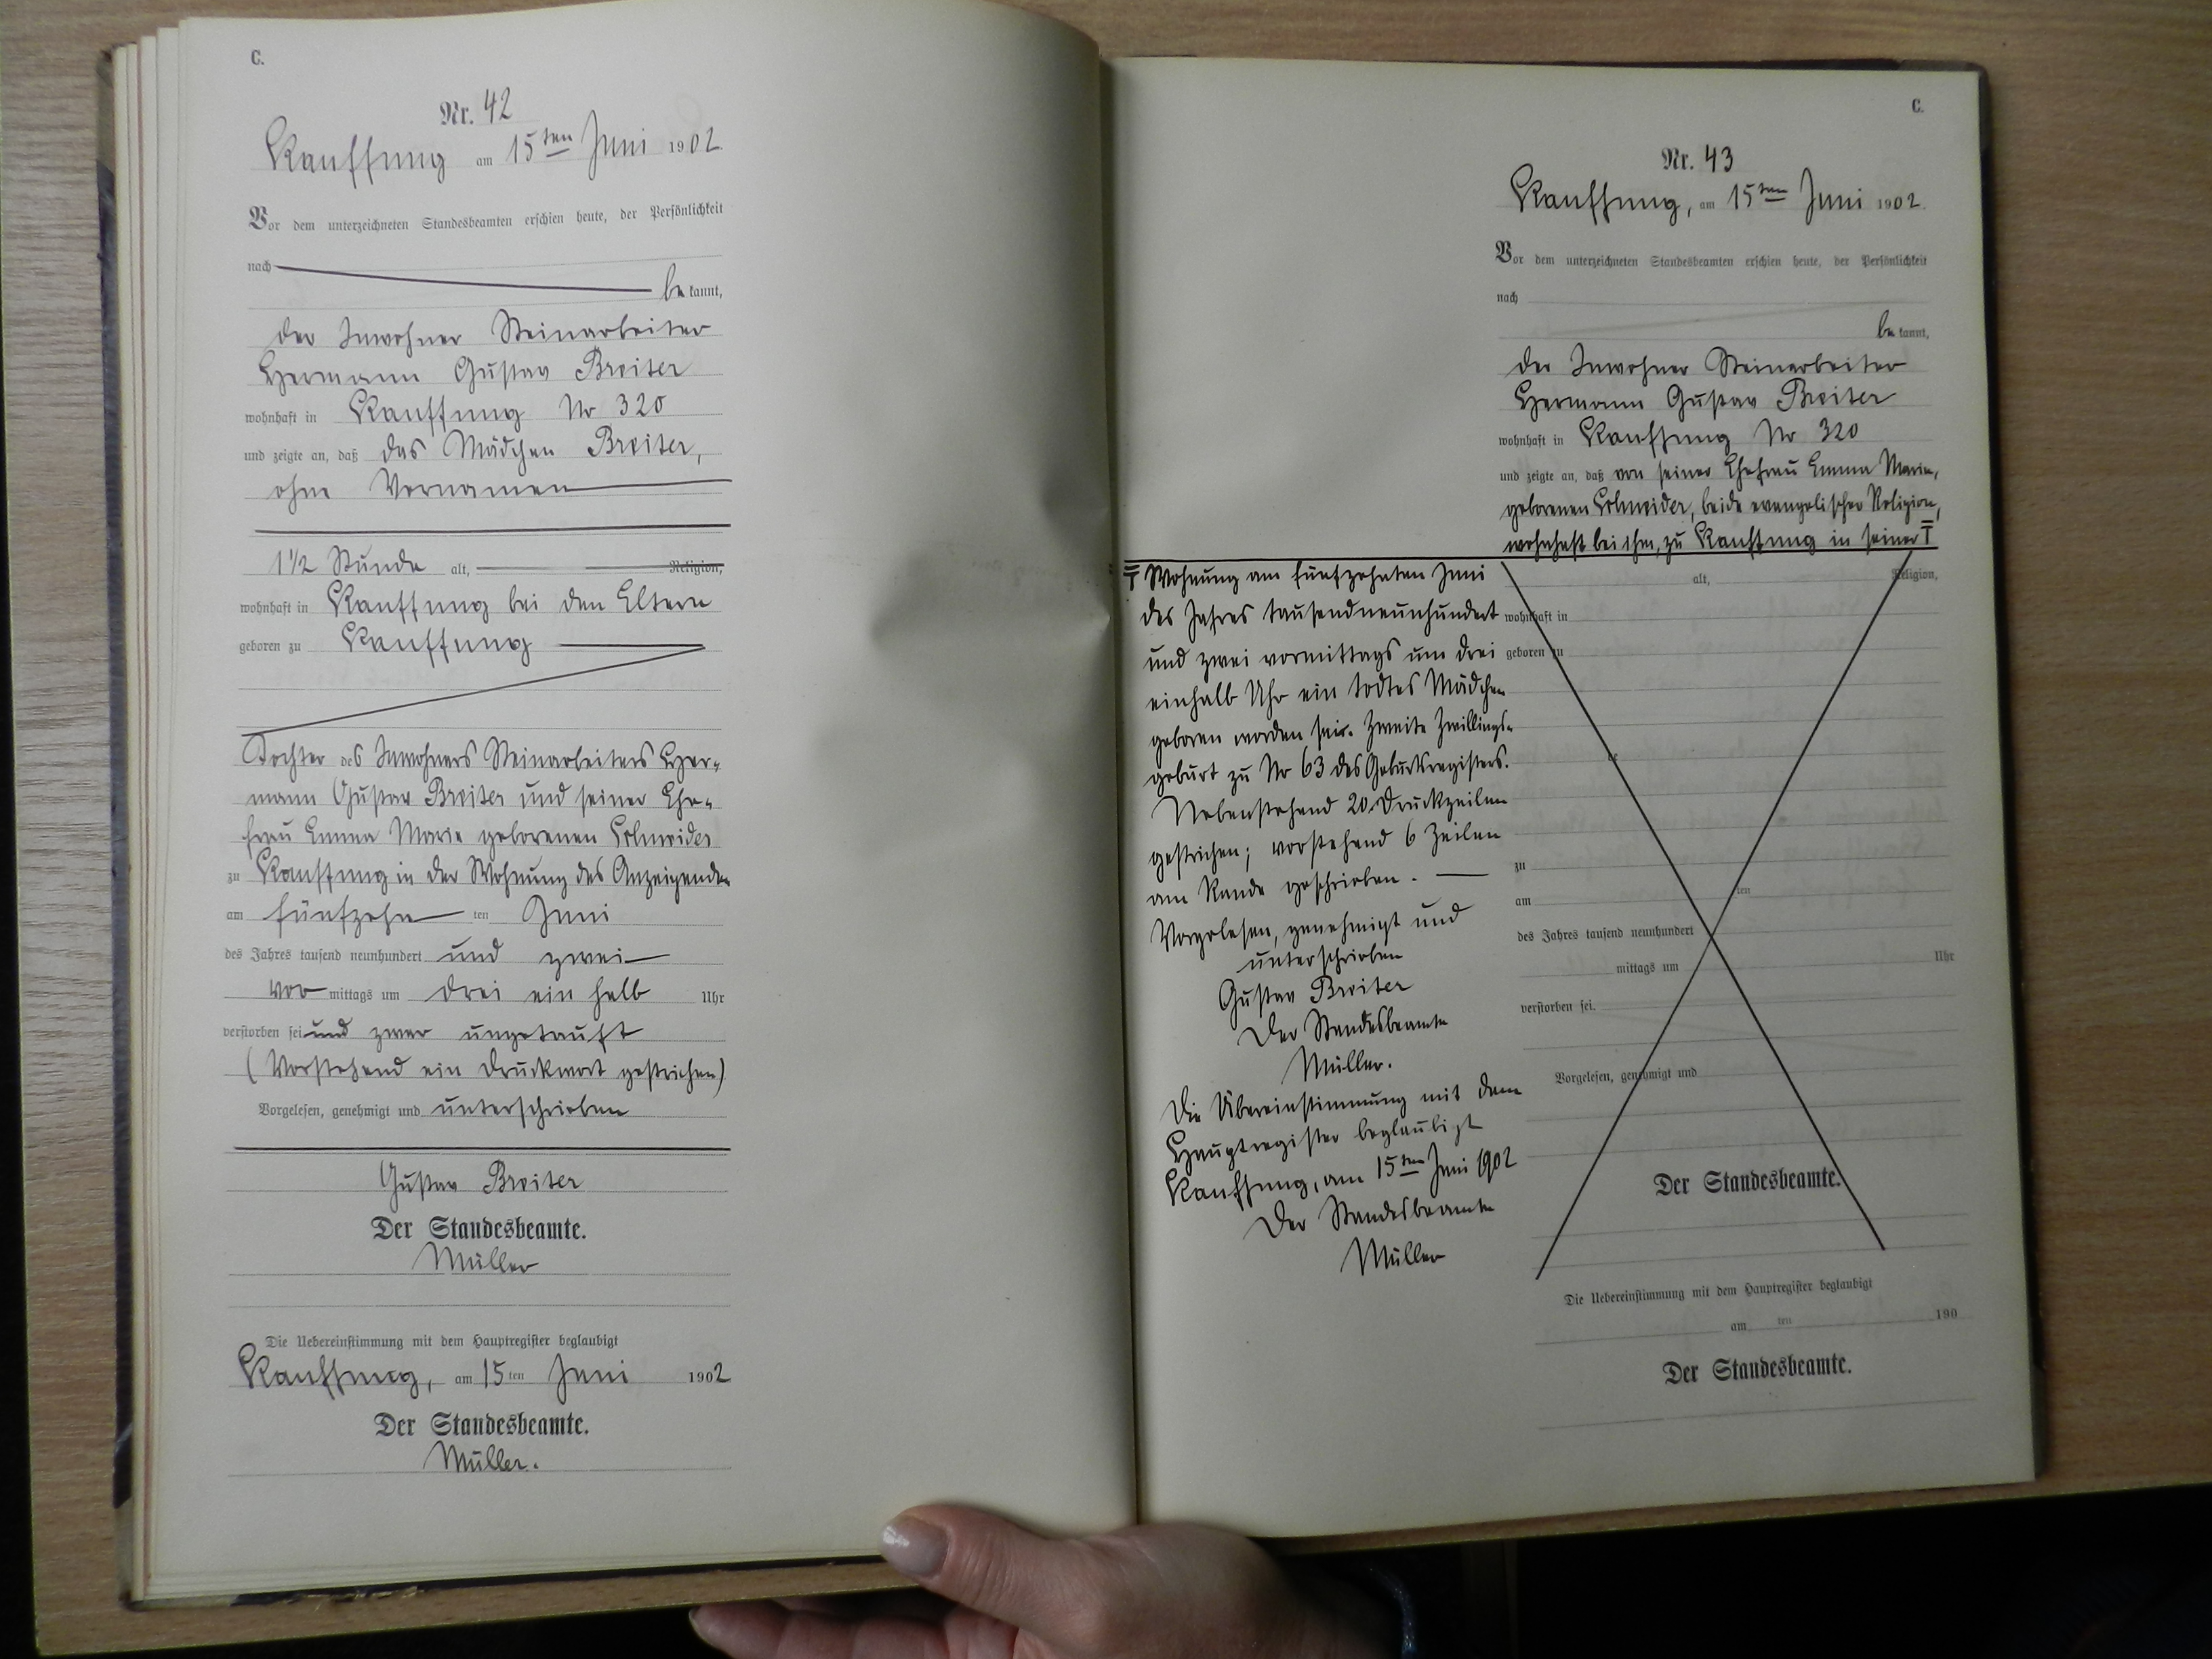 C.
Nr. 42
Kauffung am 15ten Juni 1902.
Vor dem unterzeichneten Standesbeamten erschien heute, der Persönlichkeit
nach
be kannt,
der Inwohner Steinarbeiter
Hermann Gustav Breiter
wohnhaft in Kauffung No 320
und zeigte an, daß das Mädchen Breiter,
ohne Vornamen
1 1/2 Stunde alt, Religion,
wohnhaft in Kauffung bei den Eltern
geboren zu Kauffung
Tochter des Inwohners Steinarbeiters Her-
mann Gustav Breiter und seiner Ehe-
frau Emma Marie geborenen Schneider
zu Kauffung in der Wohnung des Anzeigenden
am fünfzehn ten Juni
des Jahres tausend neunhundert und zwei
vor mittags um drei ein halb Uhr
verstorben sei und zwar ungetauft
(Vorstehend ein Druckwort gestrichen)
Vorgelesen, genehmigt und unterschrieben
Gustav Breiter
Der Standesbeamte.
Müller
Die Uebereinstimmung mit dem Hauptregister beglaubigt
Kauffung, am 15 ten Juni 1902
Der Standesbeamte.
Müller.
C.
Nr. 43
Kauffung, am 15ten Juni 1902.
Vor dem unterzeichneten Standesbeamten erschien heute, der Persönlichkeit
nach
be kannt,
der Inwohner Steinarbeiter
Hermann Gustav Breiter
wohnhaft in Kauffung No 320
und zeigte an, daß von seiner Ehefrau Emma Marie,
geborenen Schneider, beide evangelischer Religion,
wohnhaft bei ihm, zu Kauffung in seiner
Wohnung am fünfzehnten Juni
des Jahres tausendneunhundert
und zwei vormittags um drei
einhalb Uhr ein todtes Mädchen
geboren worden sei. Zweite Zwillings-
geburt zu No 63 des Geburtsregisters.
Nebenstehend 20 Druckzeilen
gestrichen; vorstehend 6 Zeilen
am Rande geschrieben.
Vorgelesen, genehmigt und
unterschrieben
Gustav Breiter
Der Standesbeamte
Müller.
Die Übereinstimmung mit dem
Hauptregister beglaubigt
Kauffung, am 15ten Juni 1902
Der Standesbeamte
Müller
alt, Religion,
wohnhaft in
geboren zu
de
zu
am ten
des Jahres tausend neunhundert
mittags um Uhr
verstorben sei.
Vorgelesen, genehmigt und
Der Standesbeamte.
Die Uebereinstimmung mit dem Hauptregister beglaubigt
am ten 190
Der Standesbeamte.